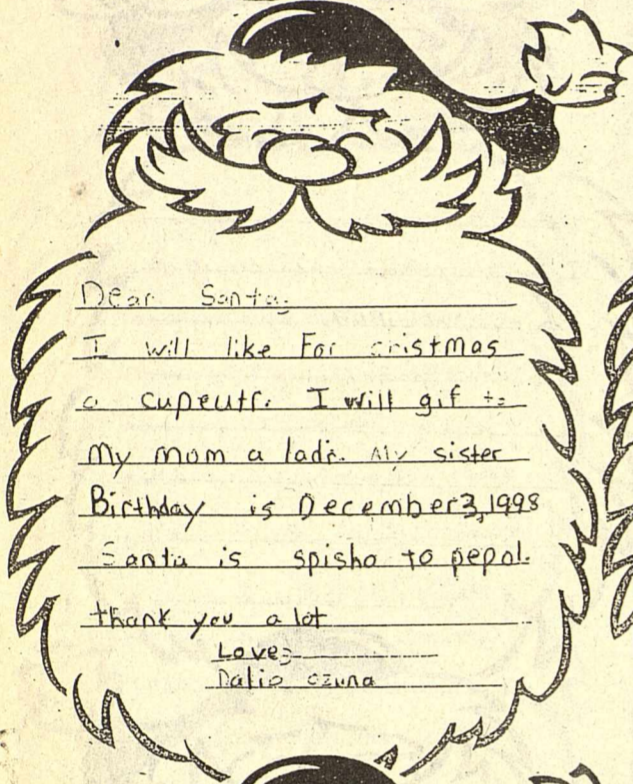 Dear Santa,
I will like For cristmas
a cupeutr. I will gif to
my mom a ladr. My sister
Birthday is December 3, 1998
Santa is spisho to pepol.
thank you a lot
Love,
Dalip ozuna